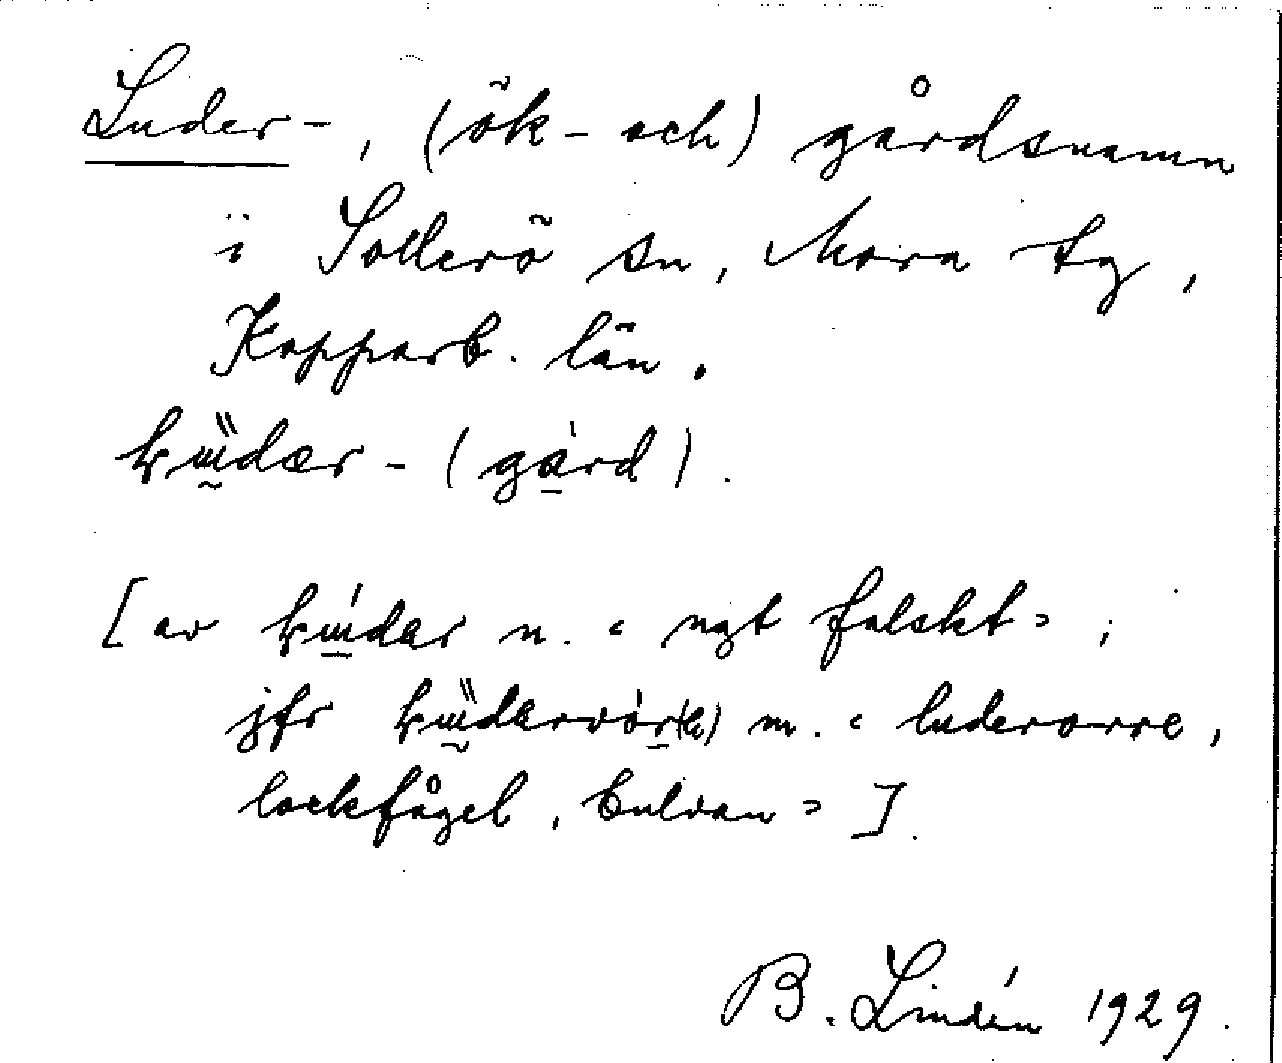 Luder-, (ök- och) gårdsnamn
i Sollerö sn, Mora tg,
Kopparb. län.
-(gård).
[av n. "ngt falskt";
jfr m. "luderorre,
lockfågel, bulvan"].
B. Lindén 1929.